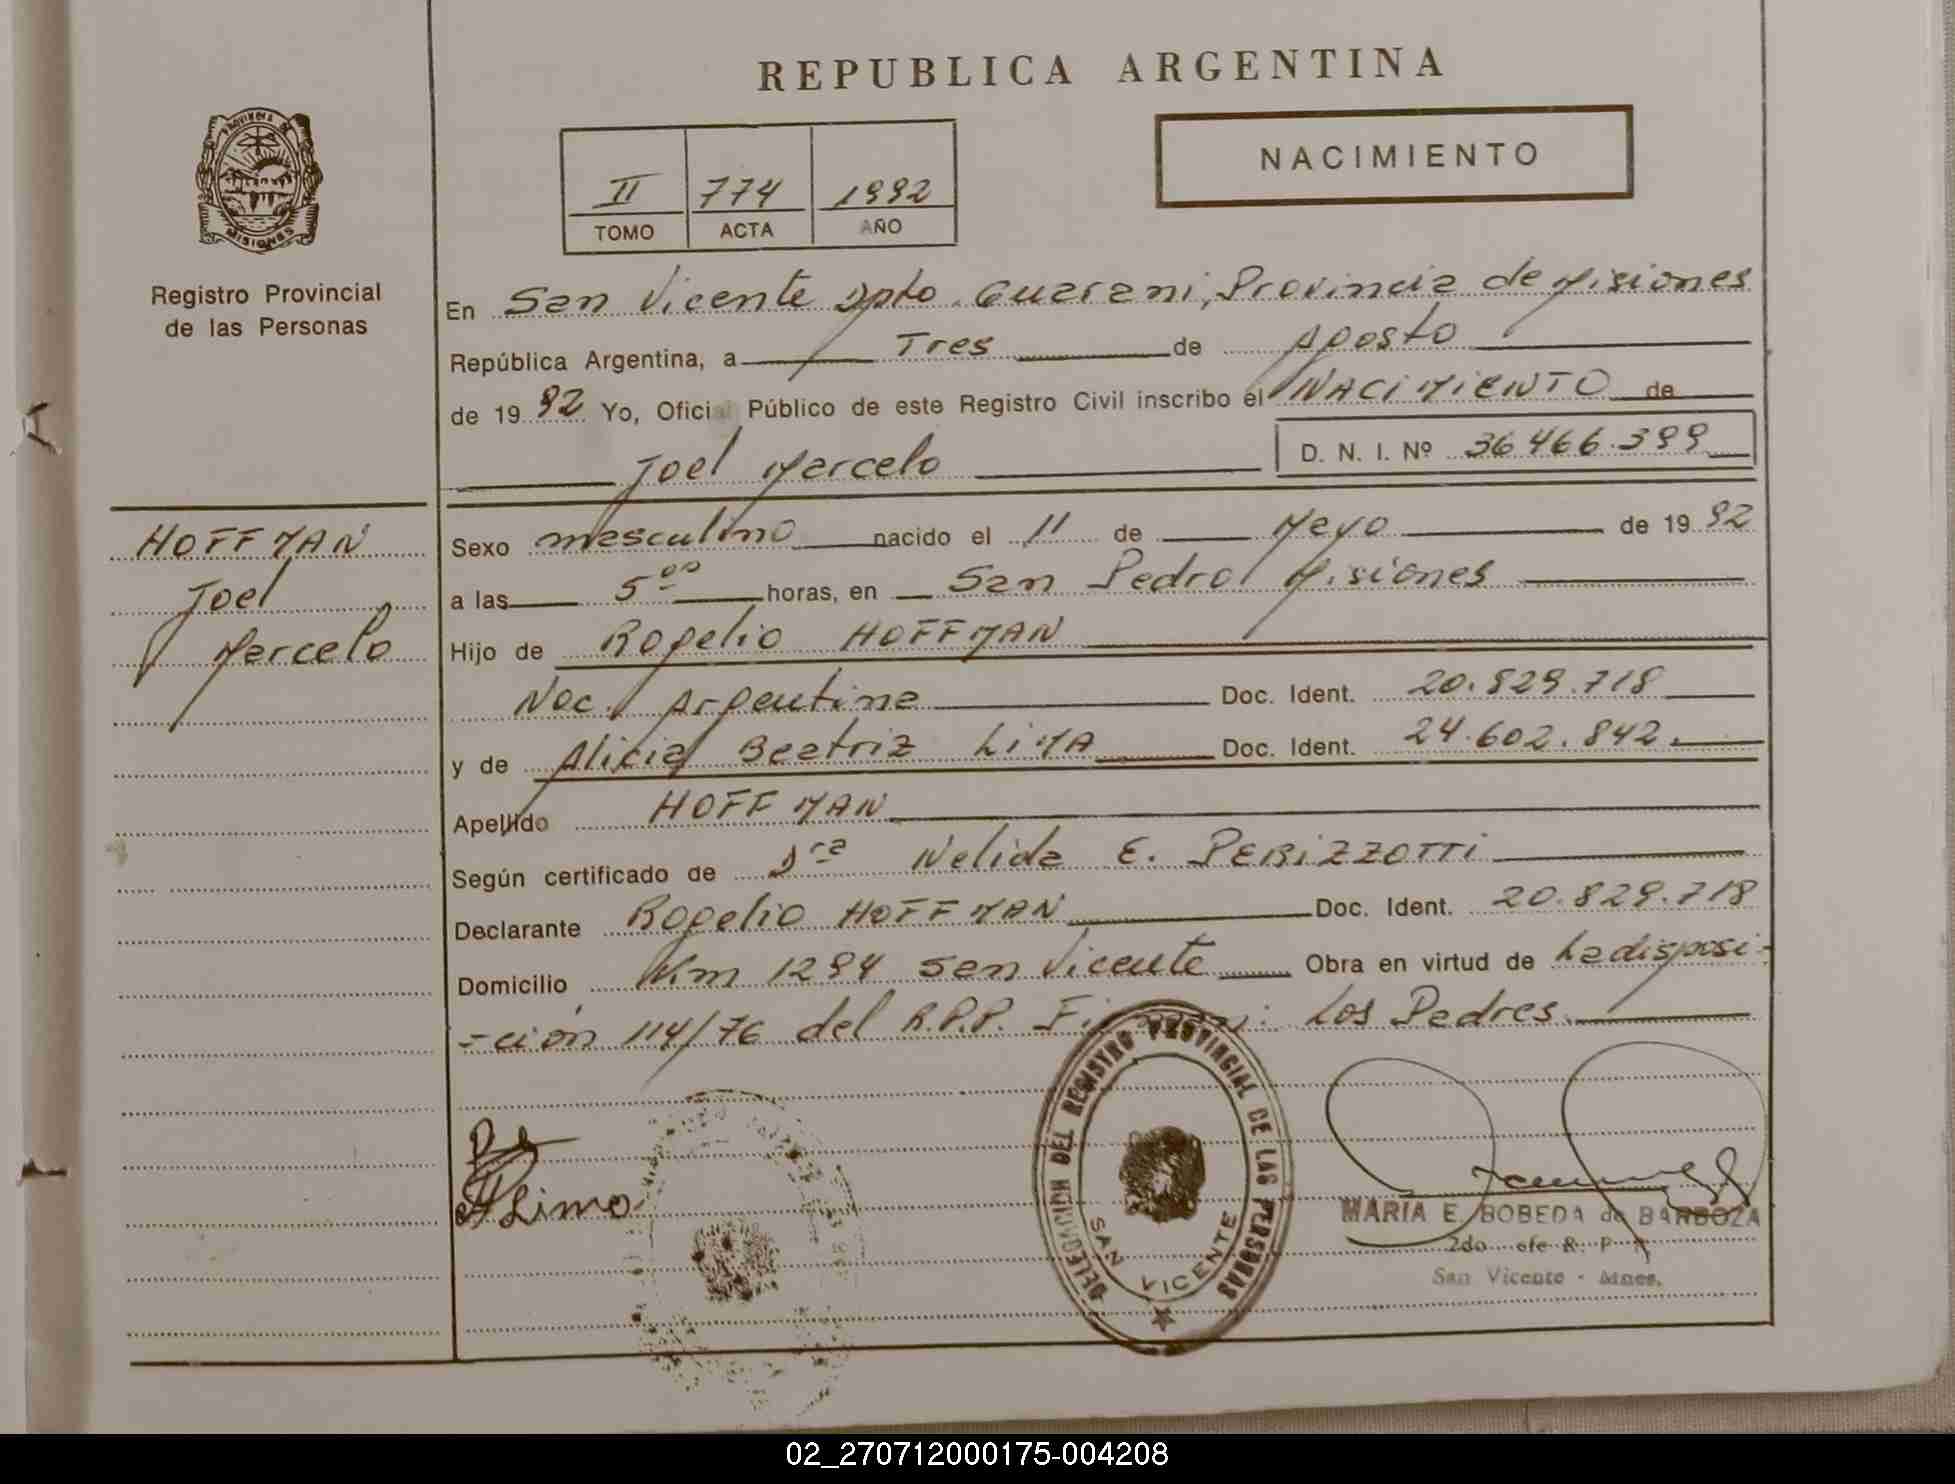 REPUBLICA ARGENTINA
NACIMIENTO
II 774 1992
TOMO ACTA AÑO
PROVINCIA DE
MISIONES
Registro Provincial
de las Personas
HOFFMAN
Joel
Marcelo
En San Vicente Dpto. Guarani, Provincia de Misiones
República Argentina, a Tres de Agosto
de 19 92 Yo, Oficial Público de este Registro Civil inscribo el NACIMIENTO de
Joel Marcelo D. N. I. Nº 36.466.399
Sexo masculino nacido el 11 de Mayo de 19 92
a las 5 00 horas, en San Pedro Misiones
Hijo de Rogelio HOFFMAN
Nac. Argentina Doc. Ident. 20.829.718
y de Alicia Beatriz LIMA Doc. Ident. 24.602.842.
Apellido HOFFMAN
Según certificado de Dra Nelida E. PERIZZOTTI
Declarante Rogelio HOFFMAN Doc. Ident. 20.829.718
Domicilio Km 1294 San Vicente Obra en virtud de La disposi-
-ción 114/76 del R.P.P. Firman: Los Padres
A Lima
DELEGACION DEL REGISTRO PROVINCIAL DE LAS PERSONAS
SAN VICENTE
MARIA E. BOBEDA de BARBOZA
2do. Jefe R. P. P.
San Vicente - Mnes.
02_270712000175-004208